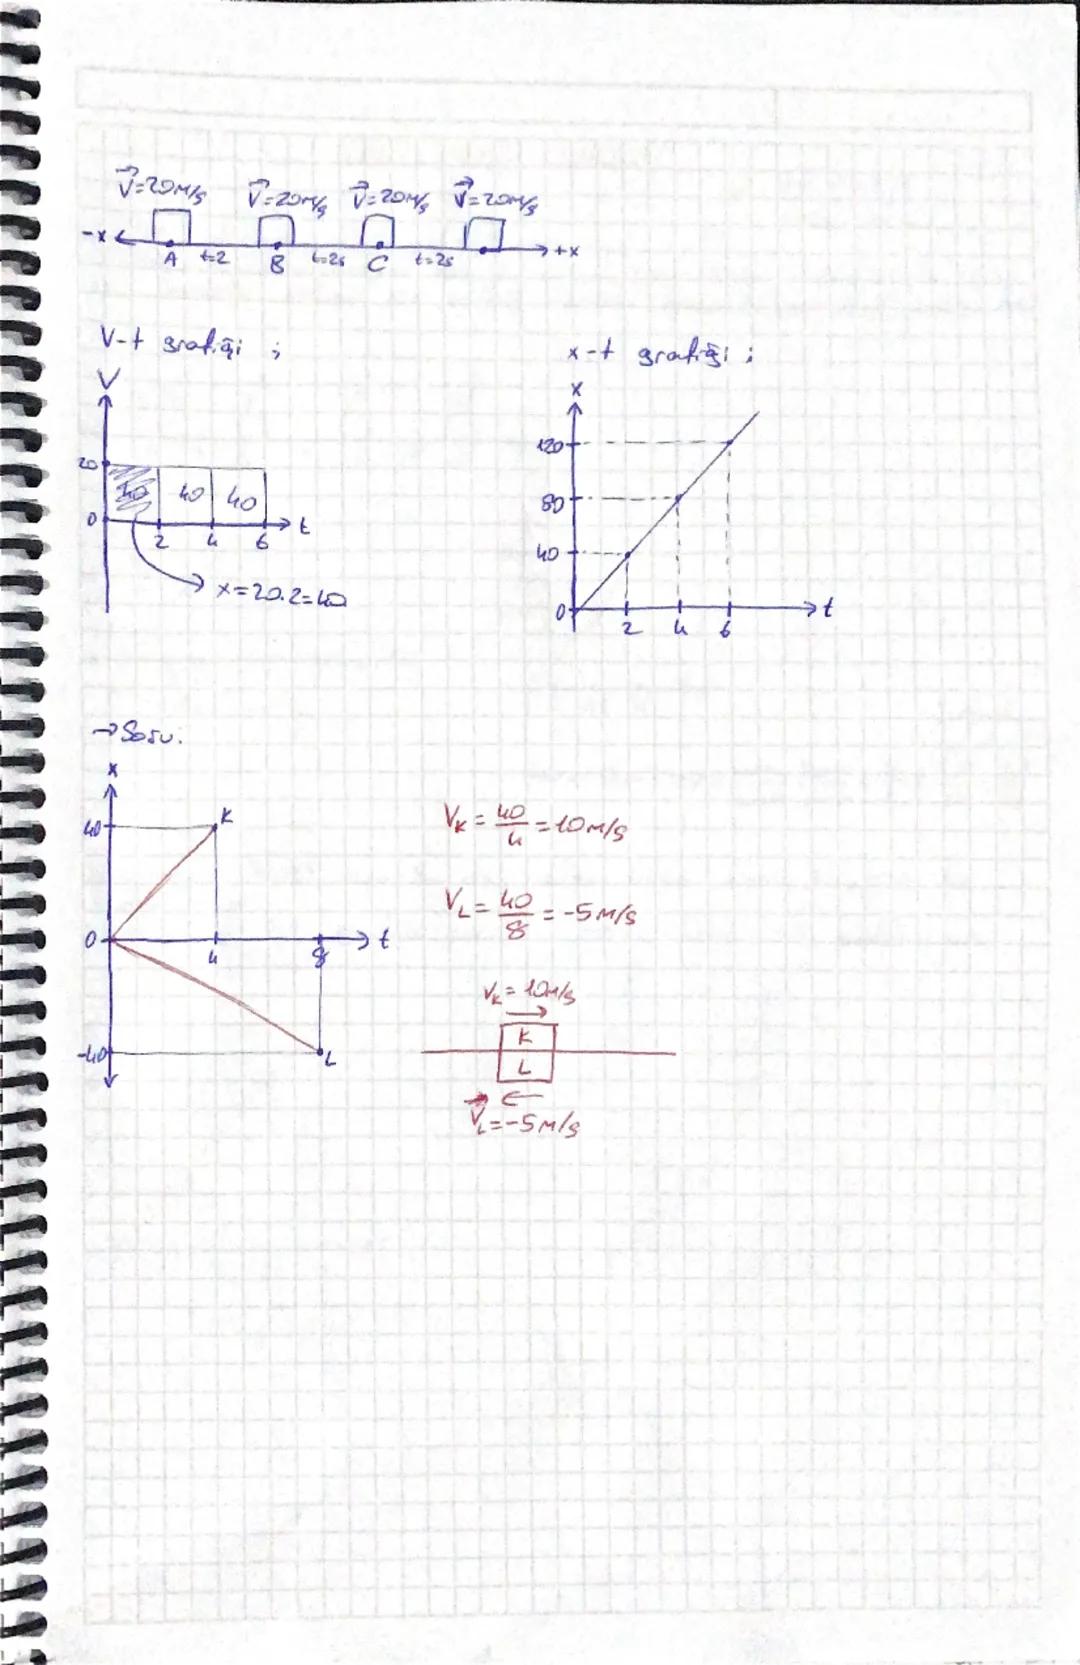 V⃗=20m/s V⃗=20m/s V⃗=20m/s V⃗=20m/s
-x +x
A t=2 B t=2s C t=2s
V-t grafiği ;
V
20
40 40 40
0 2 4 6 t
x=20.2=40
x-t grafiği ;
x
120
80
40
0 2 4 6 t
→Soru.
x
40 K
0 4 8 t
-40 L
VK = 40/4 = 10m/s
VL = 40/8 = -5m/s
VK = 10m/s
K
L
V⃗L = -5m/s